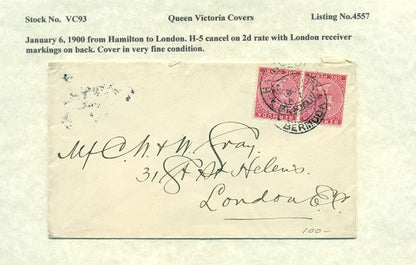 Stock No. VC93 Queen Victoria Covers Listing No.4557
January 6, 1900 from Hamilton to London. H-5 cancel on 2d rate with London receiver
markings on back. Cover in very fine condition.
BERMUDA
W. Gray.
31 St Helen's
London
100-